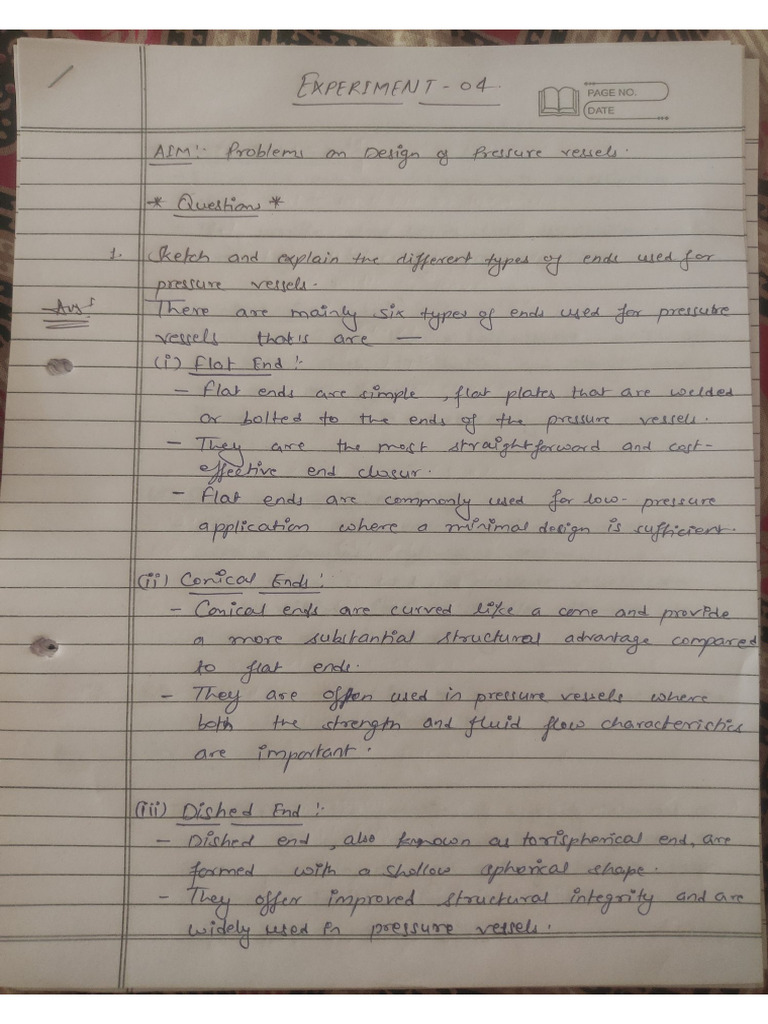 EXPERIMENT - 04.
PAGE NO.
DATE
AIM:- Problems on Design of Pressure vessels.
* Questions *
1. Sketch and explain the different types of ends used for
pressure vessels.
Ans:
There are mainly six types of ends used for pressure
vessels that's are —
(i) Flat End :-
- Flat ends are simple, flat plates that are welded
or bolted to the ends of the pressure vessels.
- They are the most straightforward and cost-
effective end closur.
- Flat ends are commonly used for low-pressure
application where a minimal design is sufficient.
(ii) Conical Ends :-
- Conical ends are curved like a cone and provide
a more substantial structural advantage compared
to flat ends.
- They are often used in pressure vessels where
both the strength and fluid flow characteristics
are important.
(iii) Dished End :-
- Dished end, also known as torispherical end, are
formed with a shallow spherical shape.
- They offer improved structural integrity and are
widely used in pressure vessels.